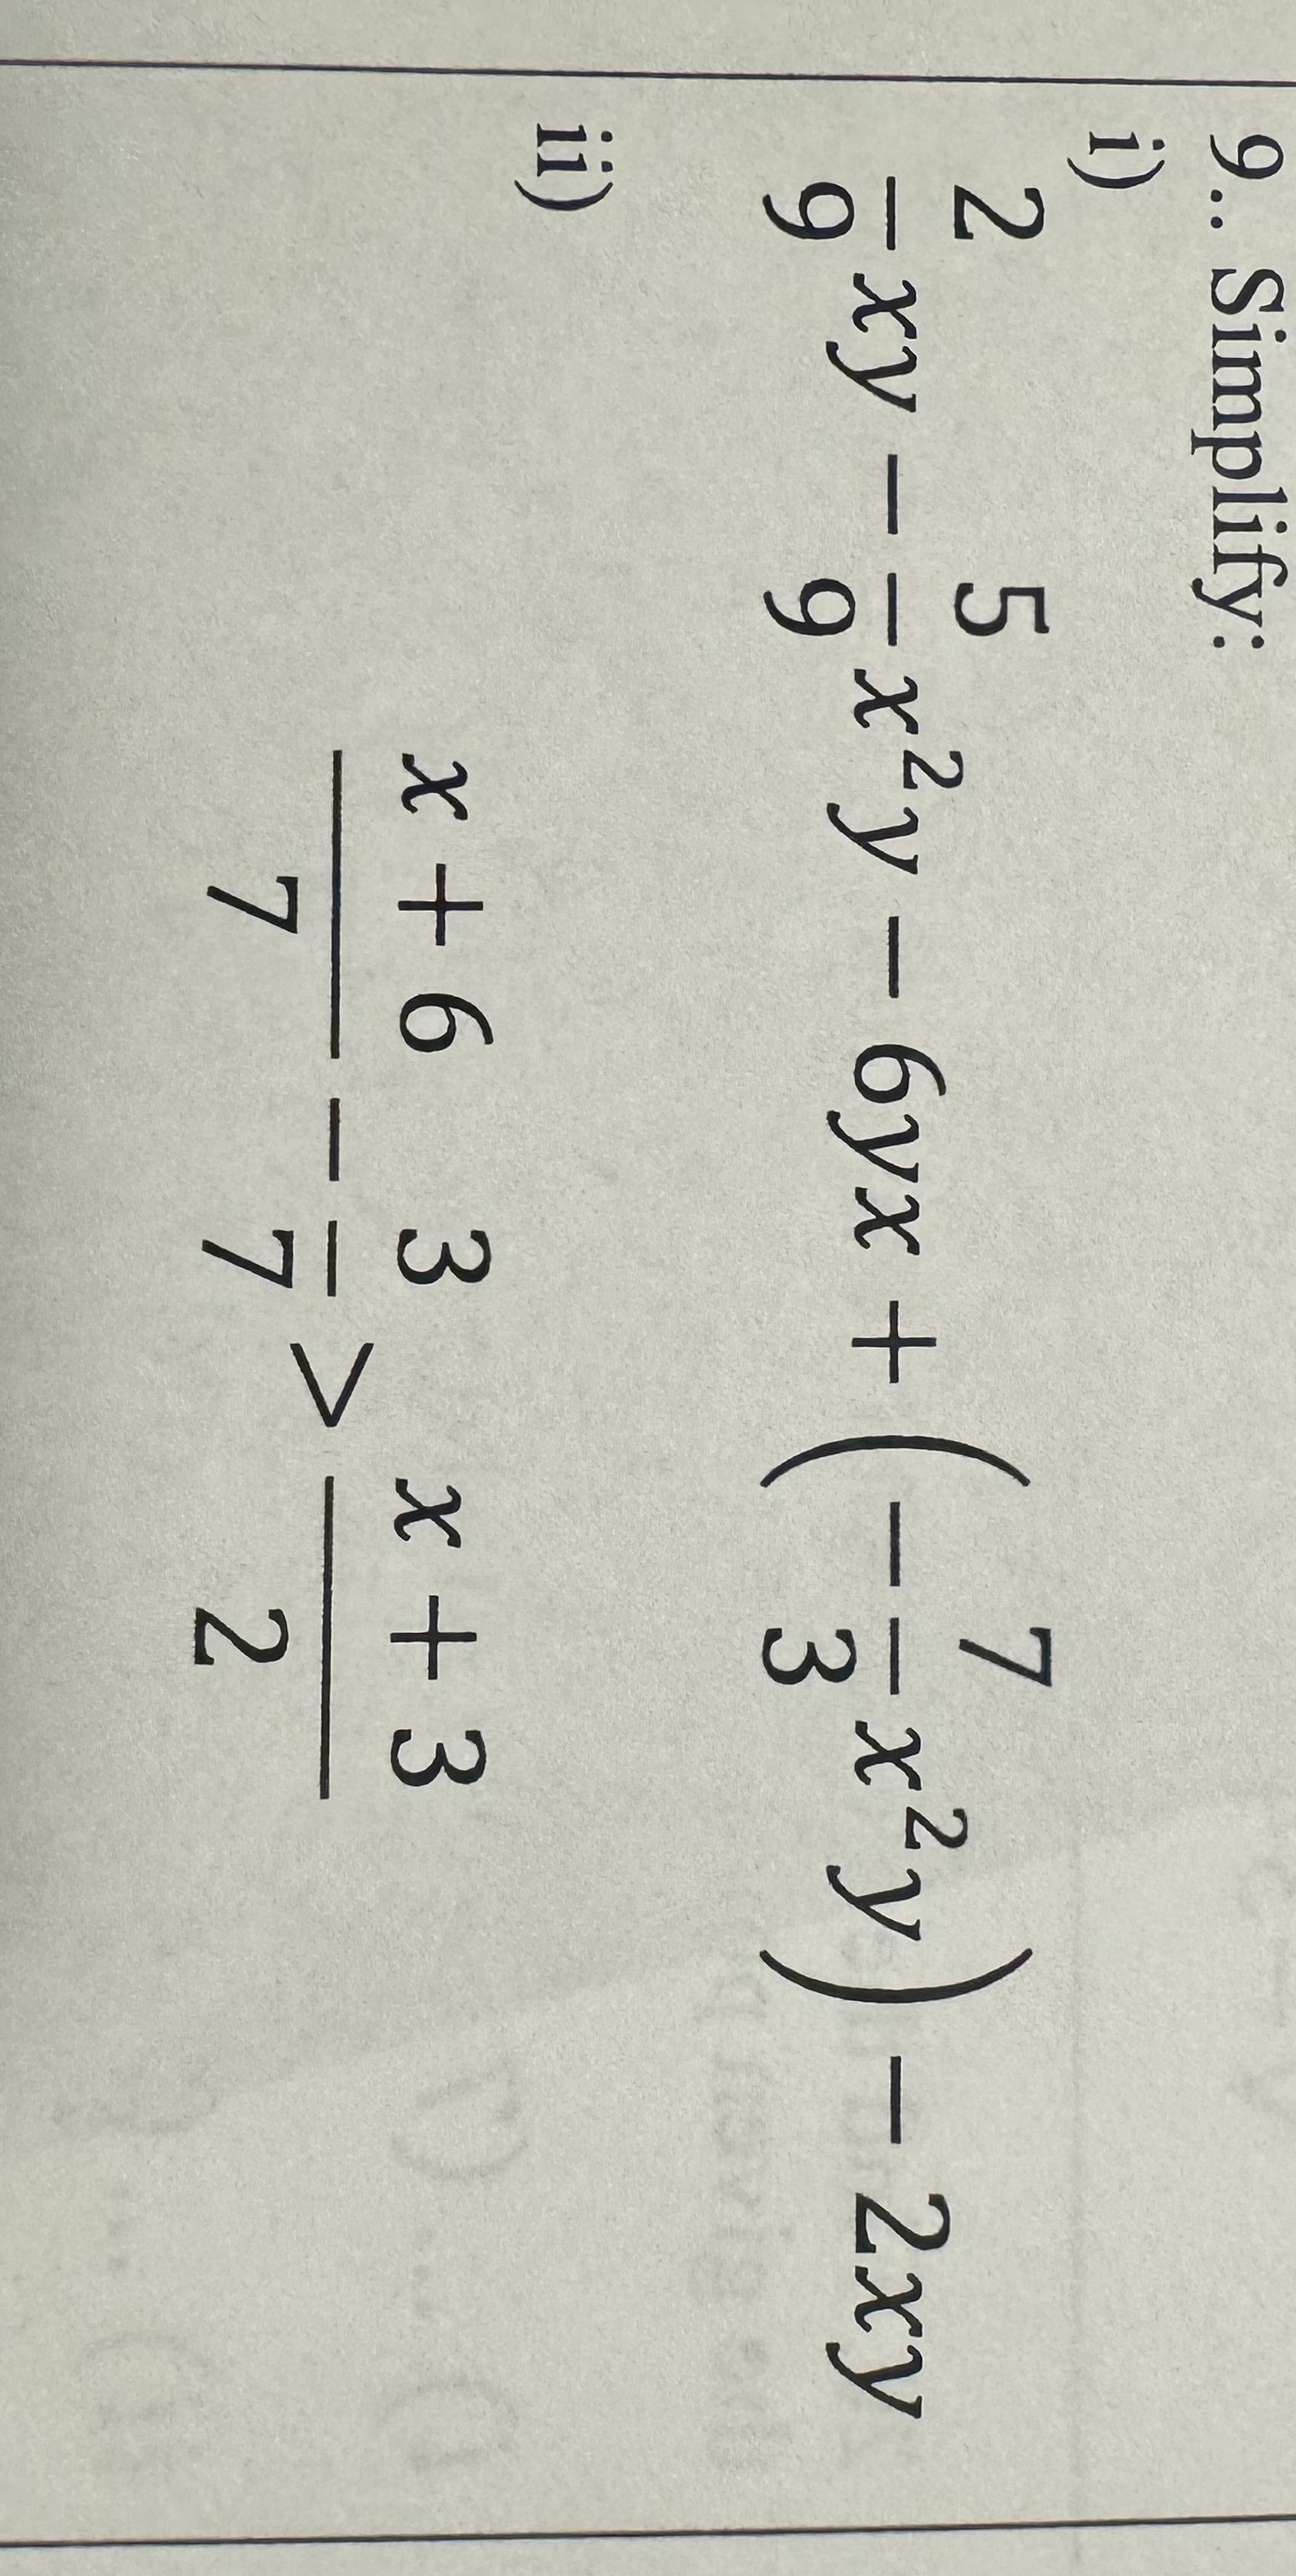 9.. Simplify:
i)
2/9 xy − 5/9 x²y − 6yx + (− 7/3 x²y) − 2xy
ii)
(x + 6)/7 − 3/7 > (x + 3)/2